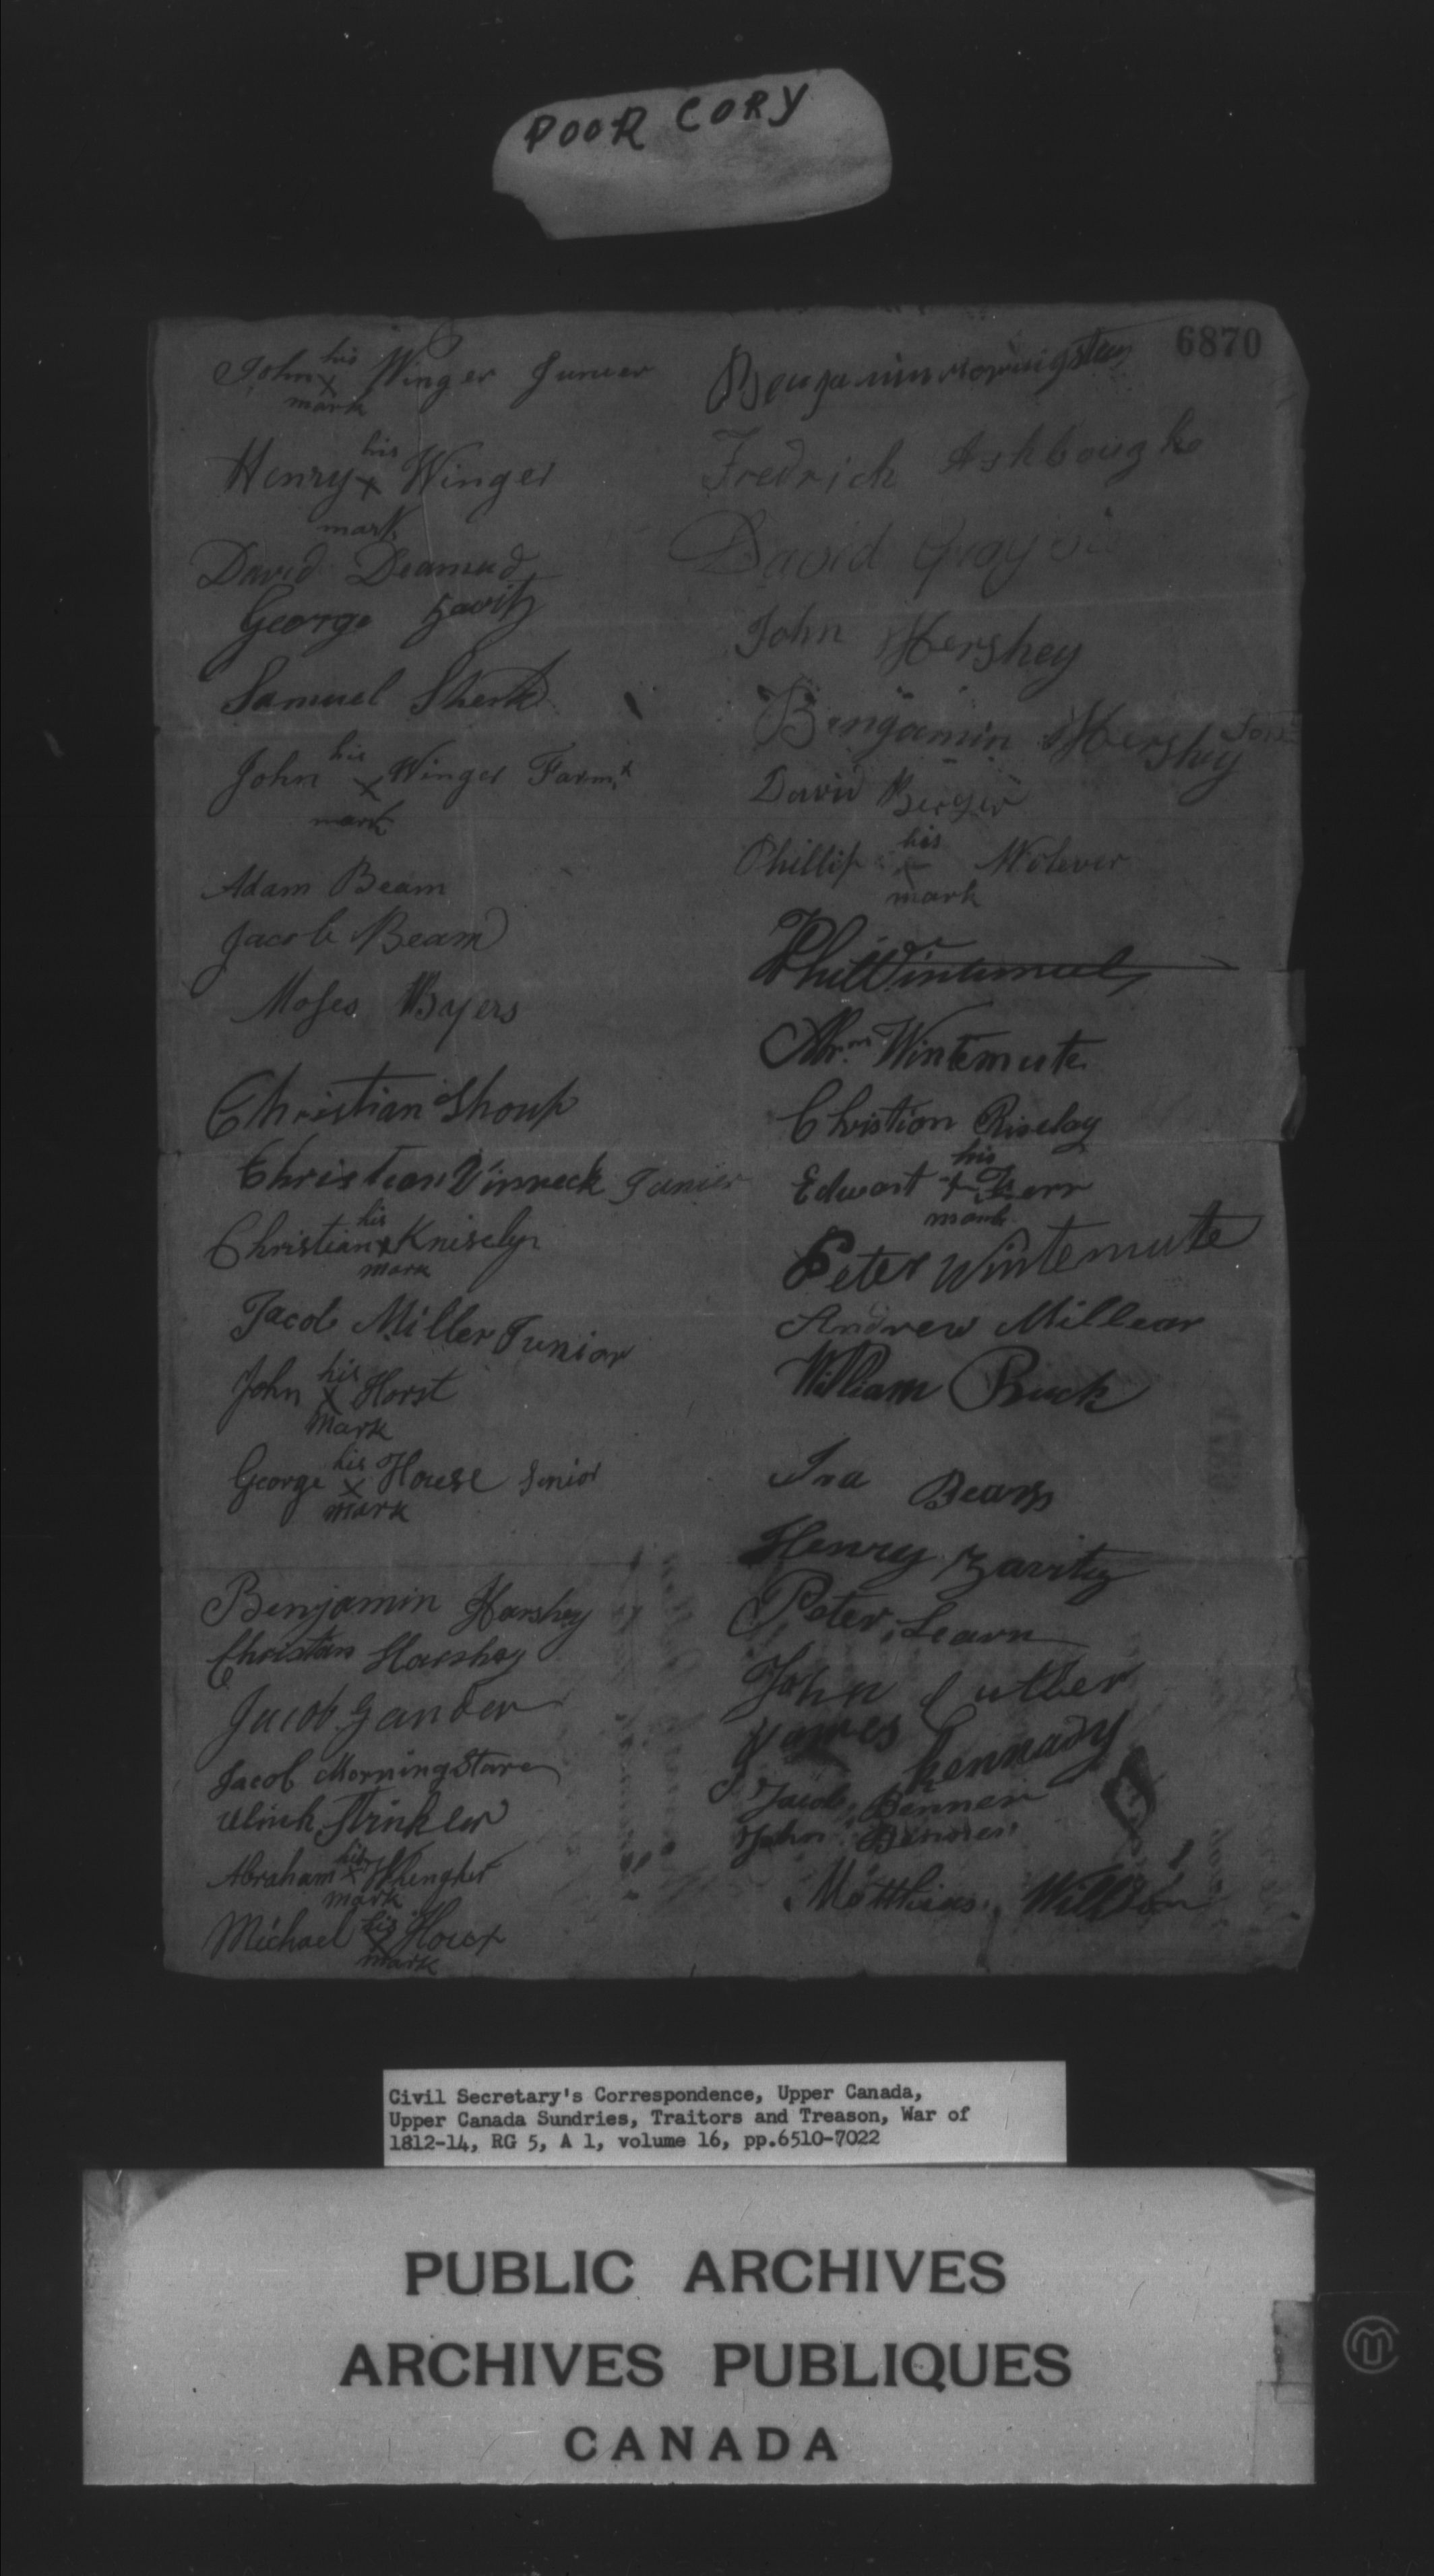 POOR COPY
6870
John his x mark Winger Junier
Henry his x mark Winger
David Deamud
George Zavitz
Samuel Sherk
John his x mark Winger Farmr
Adam Beam
Jacob Beam
Moses Byers
Christian Shoup
Christian Vinneck Junier
Christian his x mark Knisely
Jacob Miller Junior
John his x mark Horst
George his x mark House Senior
Benjamin Harshey
Christian Harshey
Jacob Gander
Jacob Morningstare
Ulrich Strickler
Abraham his x mark
Michael his x mark
Benjamin Morningstar
Fredrich Ashbough
David
John Hershey
Bengamin Hershey
David Berger
Phillip his mark Wolever
Phil Wintemute
Abrm Wintemute
Christion Riselay
Edwart his + mark
Peter Wintemute
Andrew Millear
William Buck
Ira Bearss
Henry Zavitz
Peter Learn
John Cutler
James Kennady
Jacob Benner
John Benner
Matthias
Civil Secretary's Correspondence, Upper Canada,
Upper Canada Sundries, Traitors and Treason, War of
1812-14, RG 5, A 1, volume 16, pp.6510-7022
PUBLIC ARCHIVES
ARCHIVES PUBLIQUES
CANADA